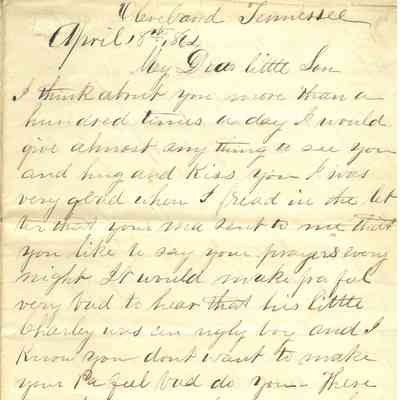 Cleveland Tennessee
April 18th 1864
My Dear little Son
I think about you more than a
hundred times a day I would
give almost any thing to see you
and hug and kiss you I was
very glad when I read in the let
ter that your ma sent to me that
you like to say your prayers every
night It would make pa feel
very bad to hear that his little
Charley was an ugly boy and I
know you dont want to make
your Pa feel bad do you - There